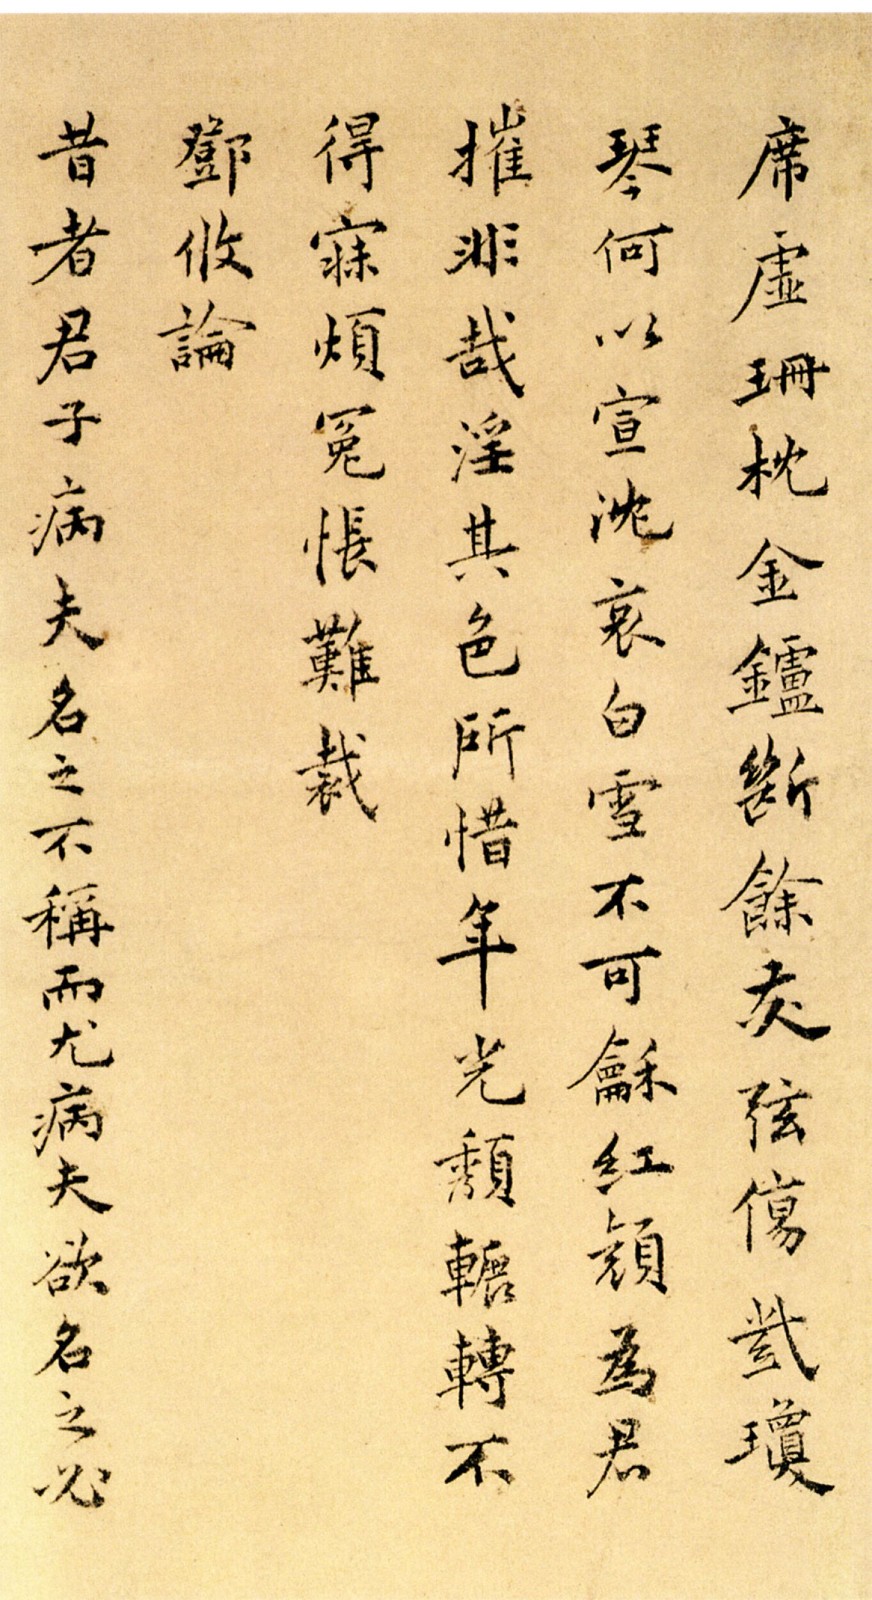 席虛珊枕金鑪斷餘灰弦傷瓊
琴何以宣沈哀白雪不可龢紅顏為君
摧非哉淫其色所惜年光頹轣轉不
得寐煩冤悵難裁
鄧攸論
昔者君子病夫名之不稱而尤病夫欲名之必